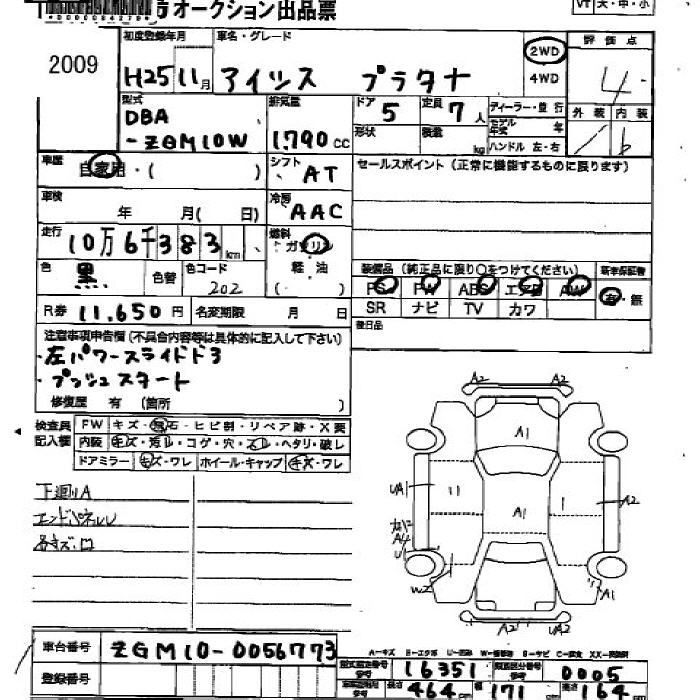 オークション出品票
VT 大・中・小
2009
初度登録年月 車名・グレード
H25 11月 アイシス プラタナ
2WD
4WD
評価点
4
外装 内装
型式 排気量 ドア 定員
DBA
-ZGM10W 1.790 CC
5 7人
形状 積載 kg
ディーラー・並行
モデル年式 年
ハンドル 左・右
車歴 シフト
自家用・( ) AT
セールスポイント (正常に機能するものに限ります)
車検 冷房
年 月( 日) AAC
走行 燃料
10万6千383km ガソリン
軽油
( )
色 色替 色コード
黒 202
装備品 (純正品に限り○をつけてください) 新車保証書
PS PW ABS エアB AW 有・無
SR ナビ TV カワ
R券 11.650円 名変期限 月 日
後日品
注意事項申告欄 (不具合内容等は具体的に記入して下さい)
・左パワースライドドア
・プッシュスタート
修復歴 有 (箇所 )
検査員
記入欄
FW キズ・飛石・ヒビ割・リペア跡・X要
内装 キズ・汚レ・コゲ・穴・スレ・ヘタリ・破レ
ドアミラー キズ・ワレ ホイール・キャップ キズ・ワレ
下廻りA
エンドパネルU
各キズ・凹
A2 A2
A1
UA1 A2
A1
U
W2 A1
A2 U2
車台番号 ZGM10-0056773
A-キズ E-エクボ U-凹み W-補修跡 S-サビ C-腐食 XX-交換済
型式指定番号 16351 類別区分番号 0005
登録番号
長さ 464cm 幅 171cm 高さ 164cm